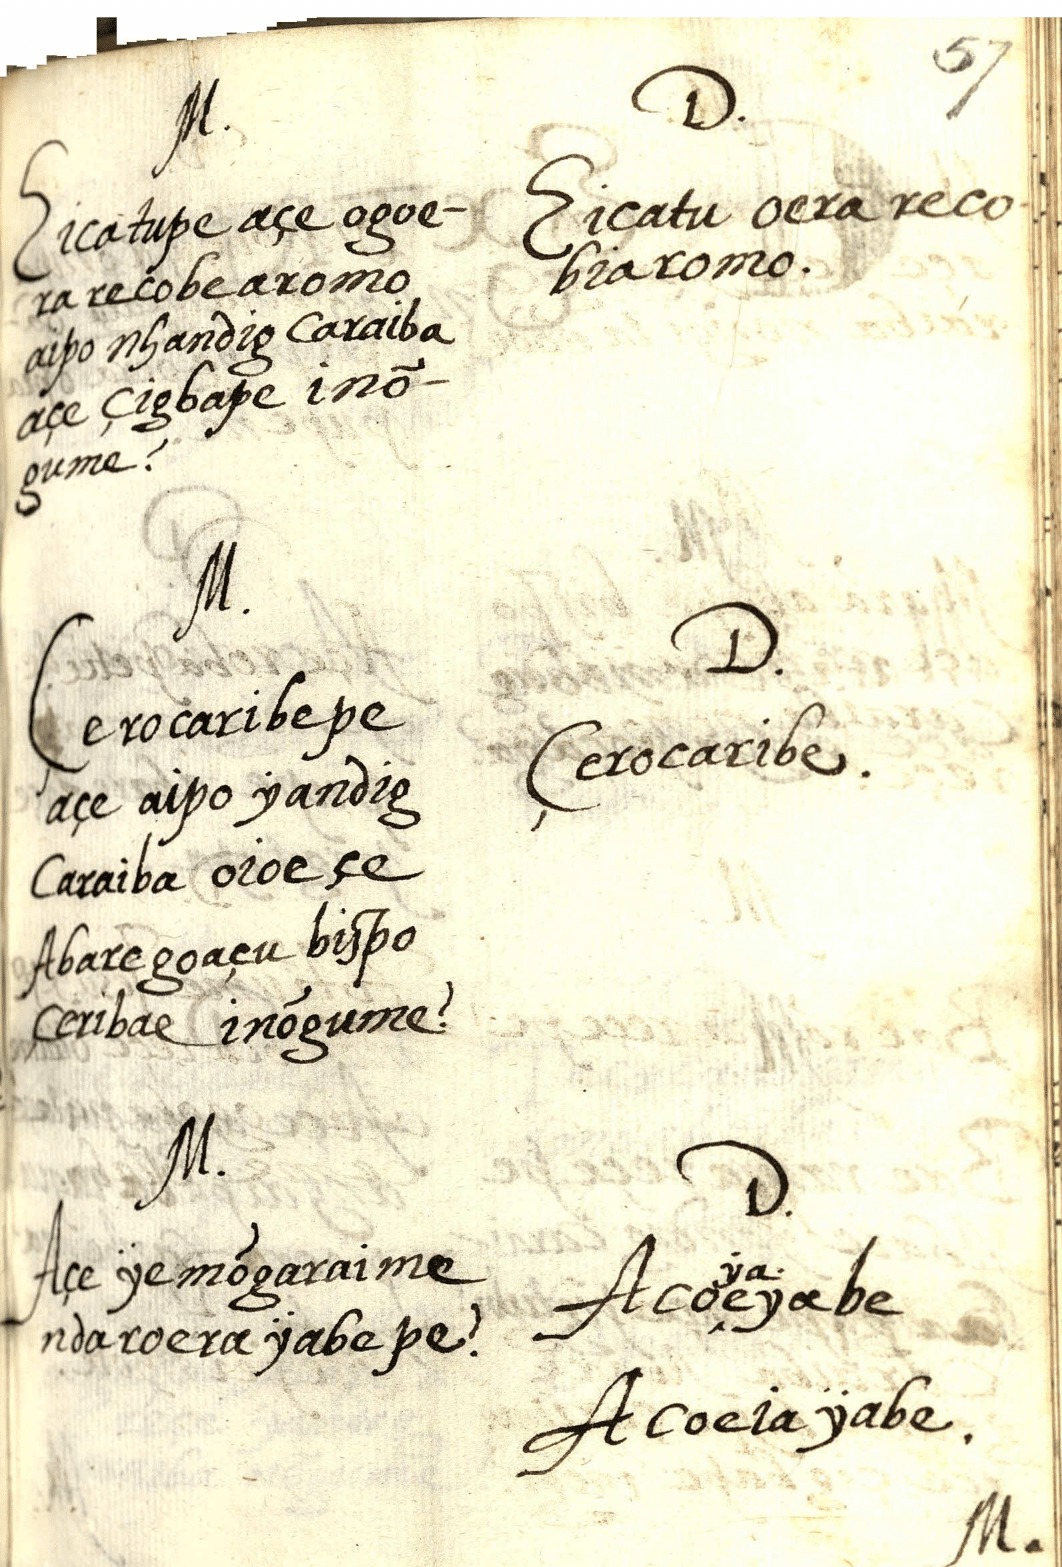 57
M.
Eicatupe açe ogoe-
ra recobe aromo
aipo nhandig Caraiba
açe Çigbape inõ-
gume?
D.
Eicatu oera reco-
biaromo.
M.
Çerocaribe pe
açe aipo ÿandig
Caraiba oioe çe
Abare goaçu bispo
ceribae inõgume?
D.
Çerocaribe.
M.
Açe ÿe mõgaraime
ndaroera ÿabe pe?
D.
ÿa.
Acoeyabe
Acoeia ÿabe.
M.